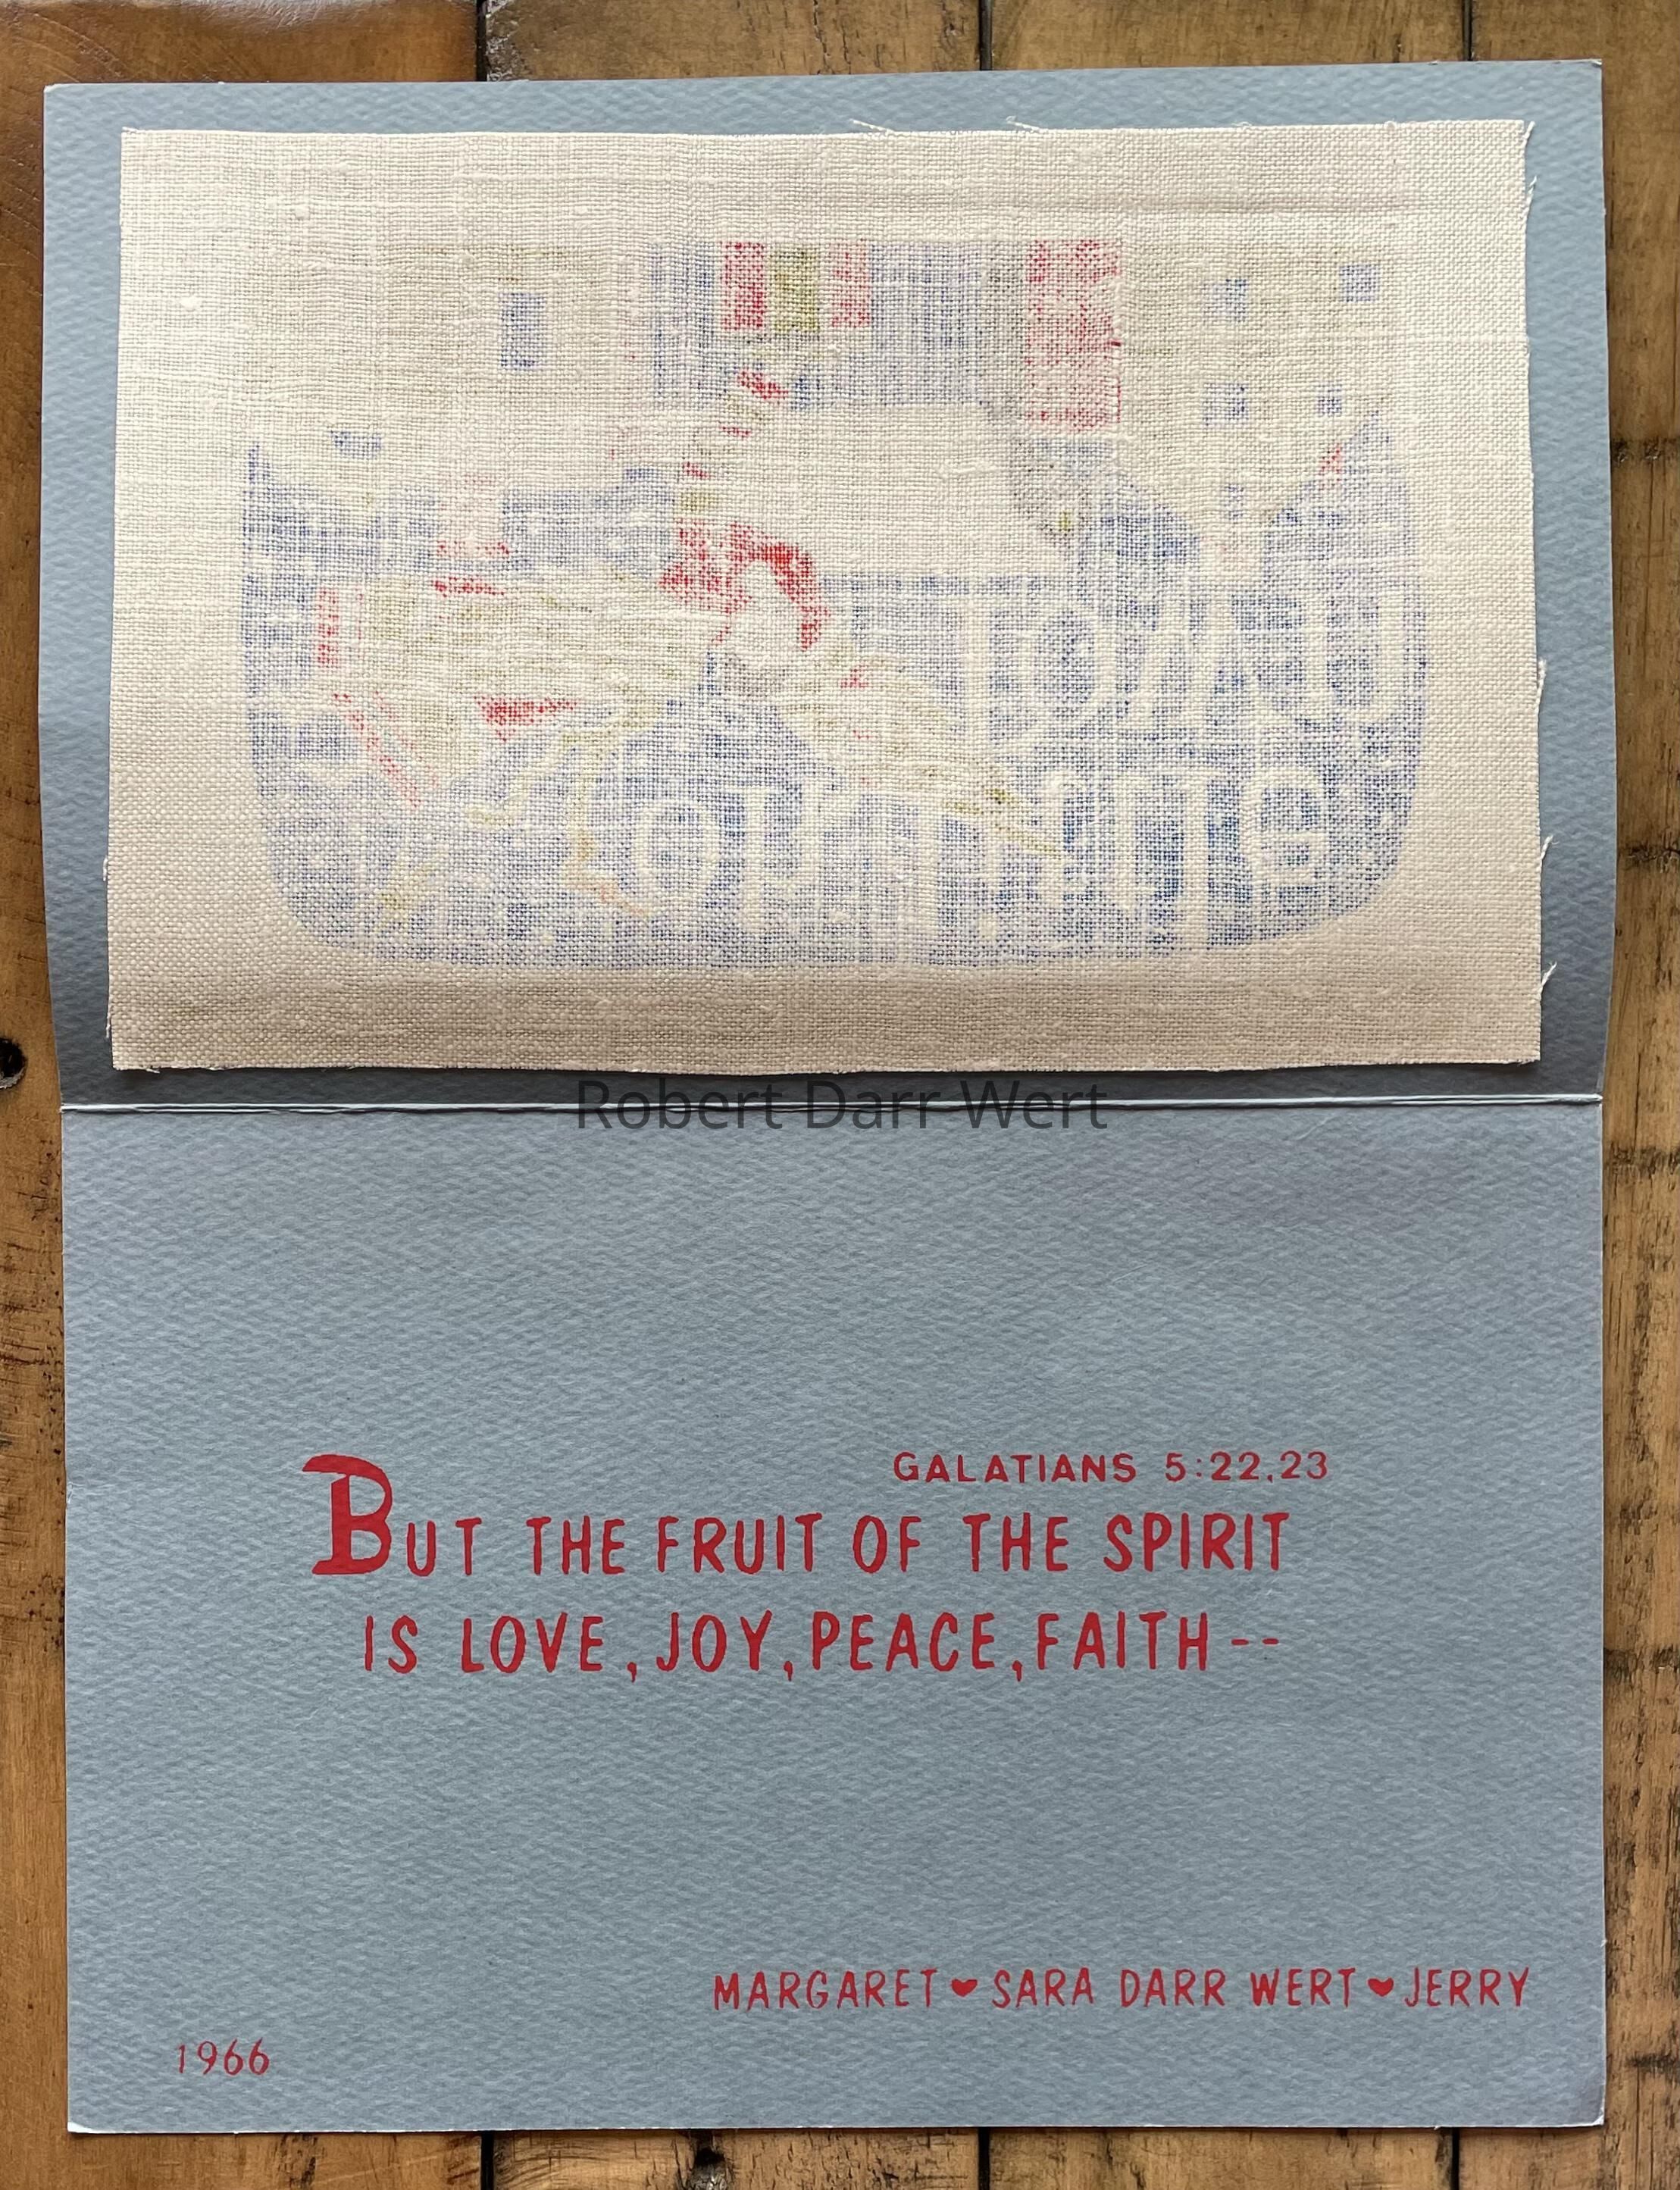 Robert Darr Wert
GALATIANS 5:22,23
BUT THE FRUIT OF THE SPIRIT
IS LOVE, JOY, PEACE, FAITH--
MARGARET ♥ SARA DARR WERT ♥ JERRY
1966